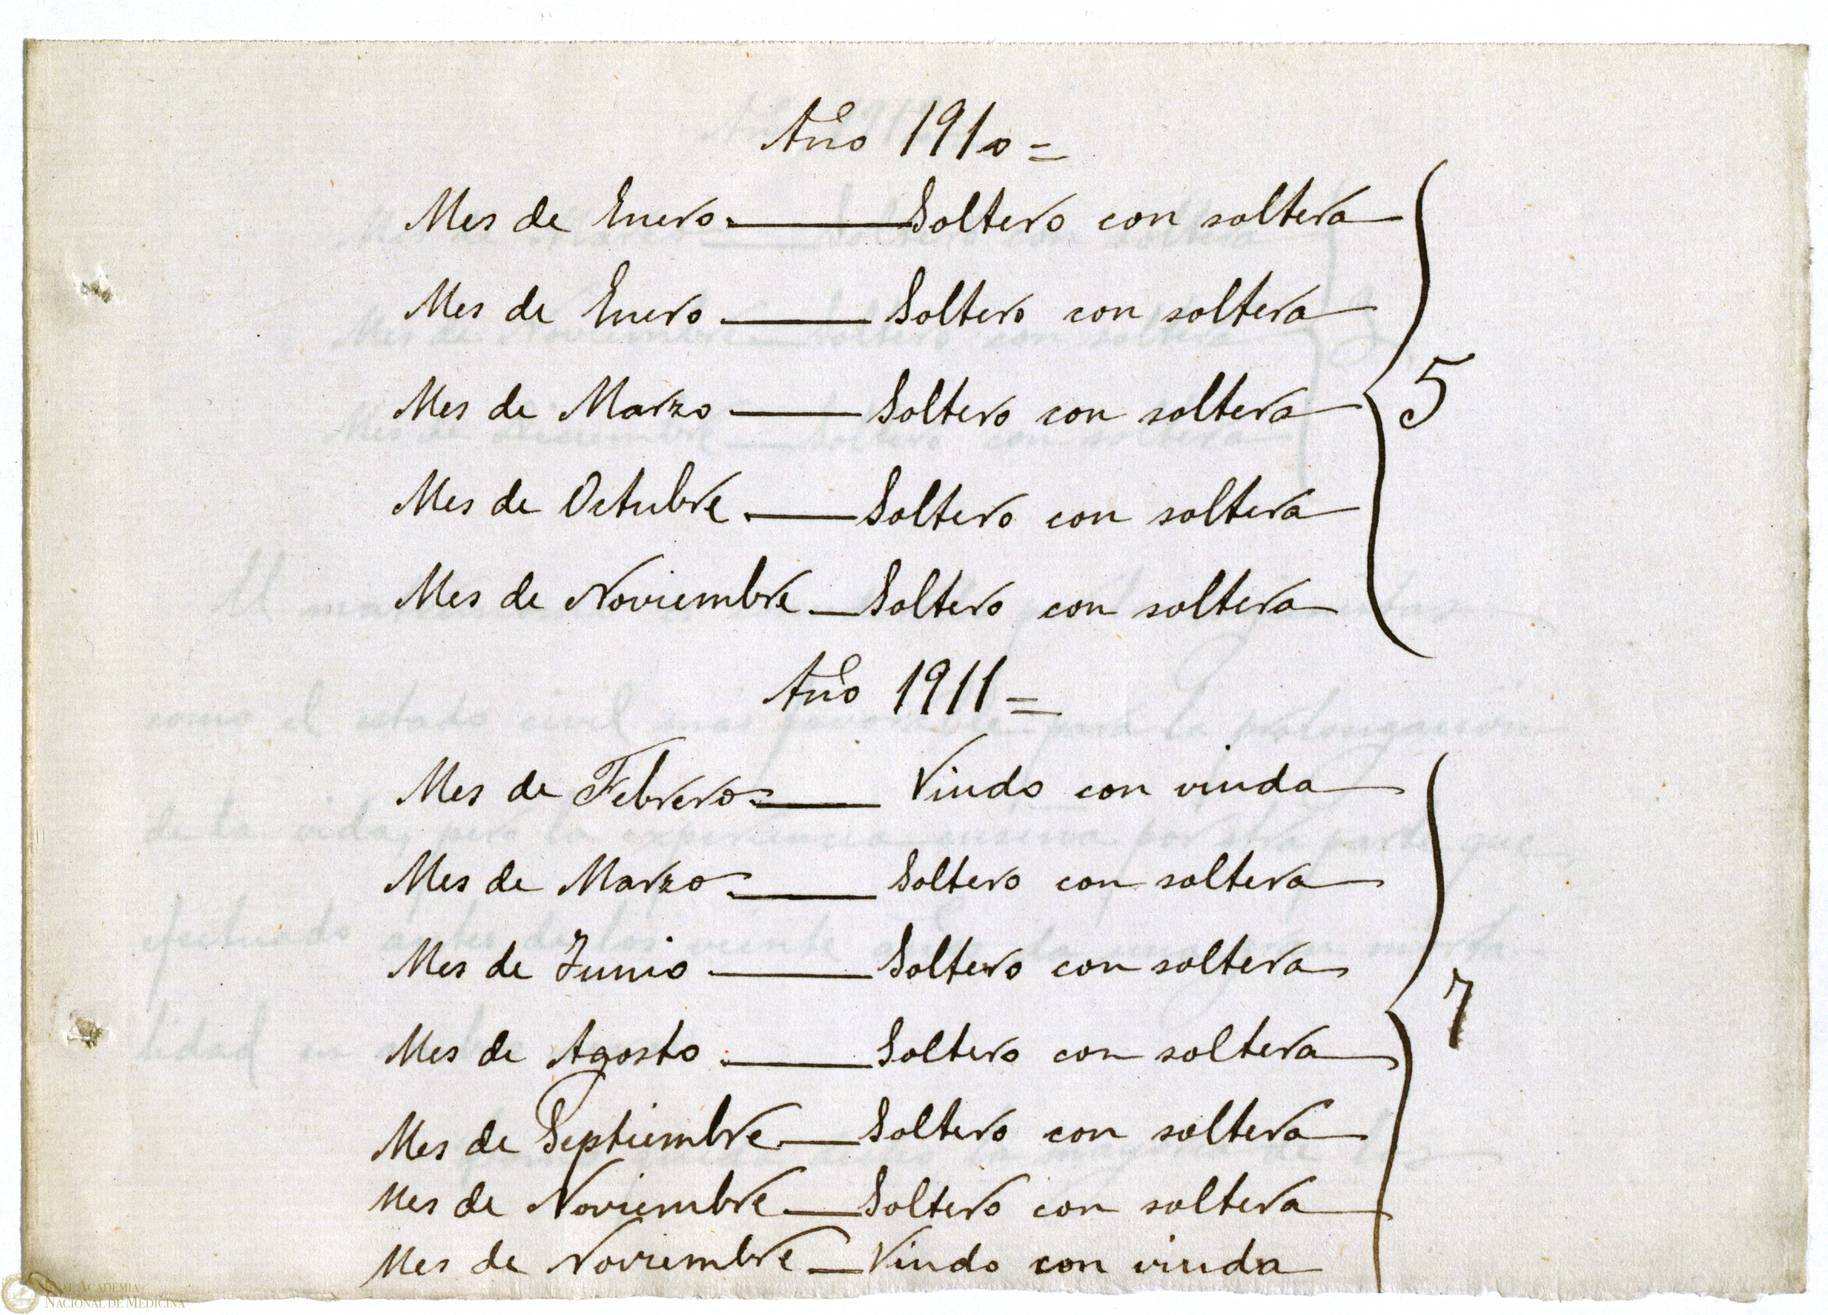 Año 1910=
Mes de Enero. Soltero con soltera
Mes de Enero Soltero con soltera
Mes de Marzo Soltero con soltera
5
Mes de Octubre. Soltero con soltera
Mes de Noviembre Soltero con soltera
Año 1911=
Mes de Febrero Viudo con viuda
Mes de Marzo Soltero con soltera
Mes de Junio Soltero con soltera
7
Mes de Agosto Soltero con soltera
Mes de Septiembre Soltero con soltera
Mes de Noviembre Soltero con soltera
Mes de Noviembre Viudo con viuda
Real Academia
Nacional de Medicina